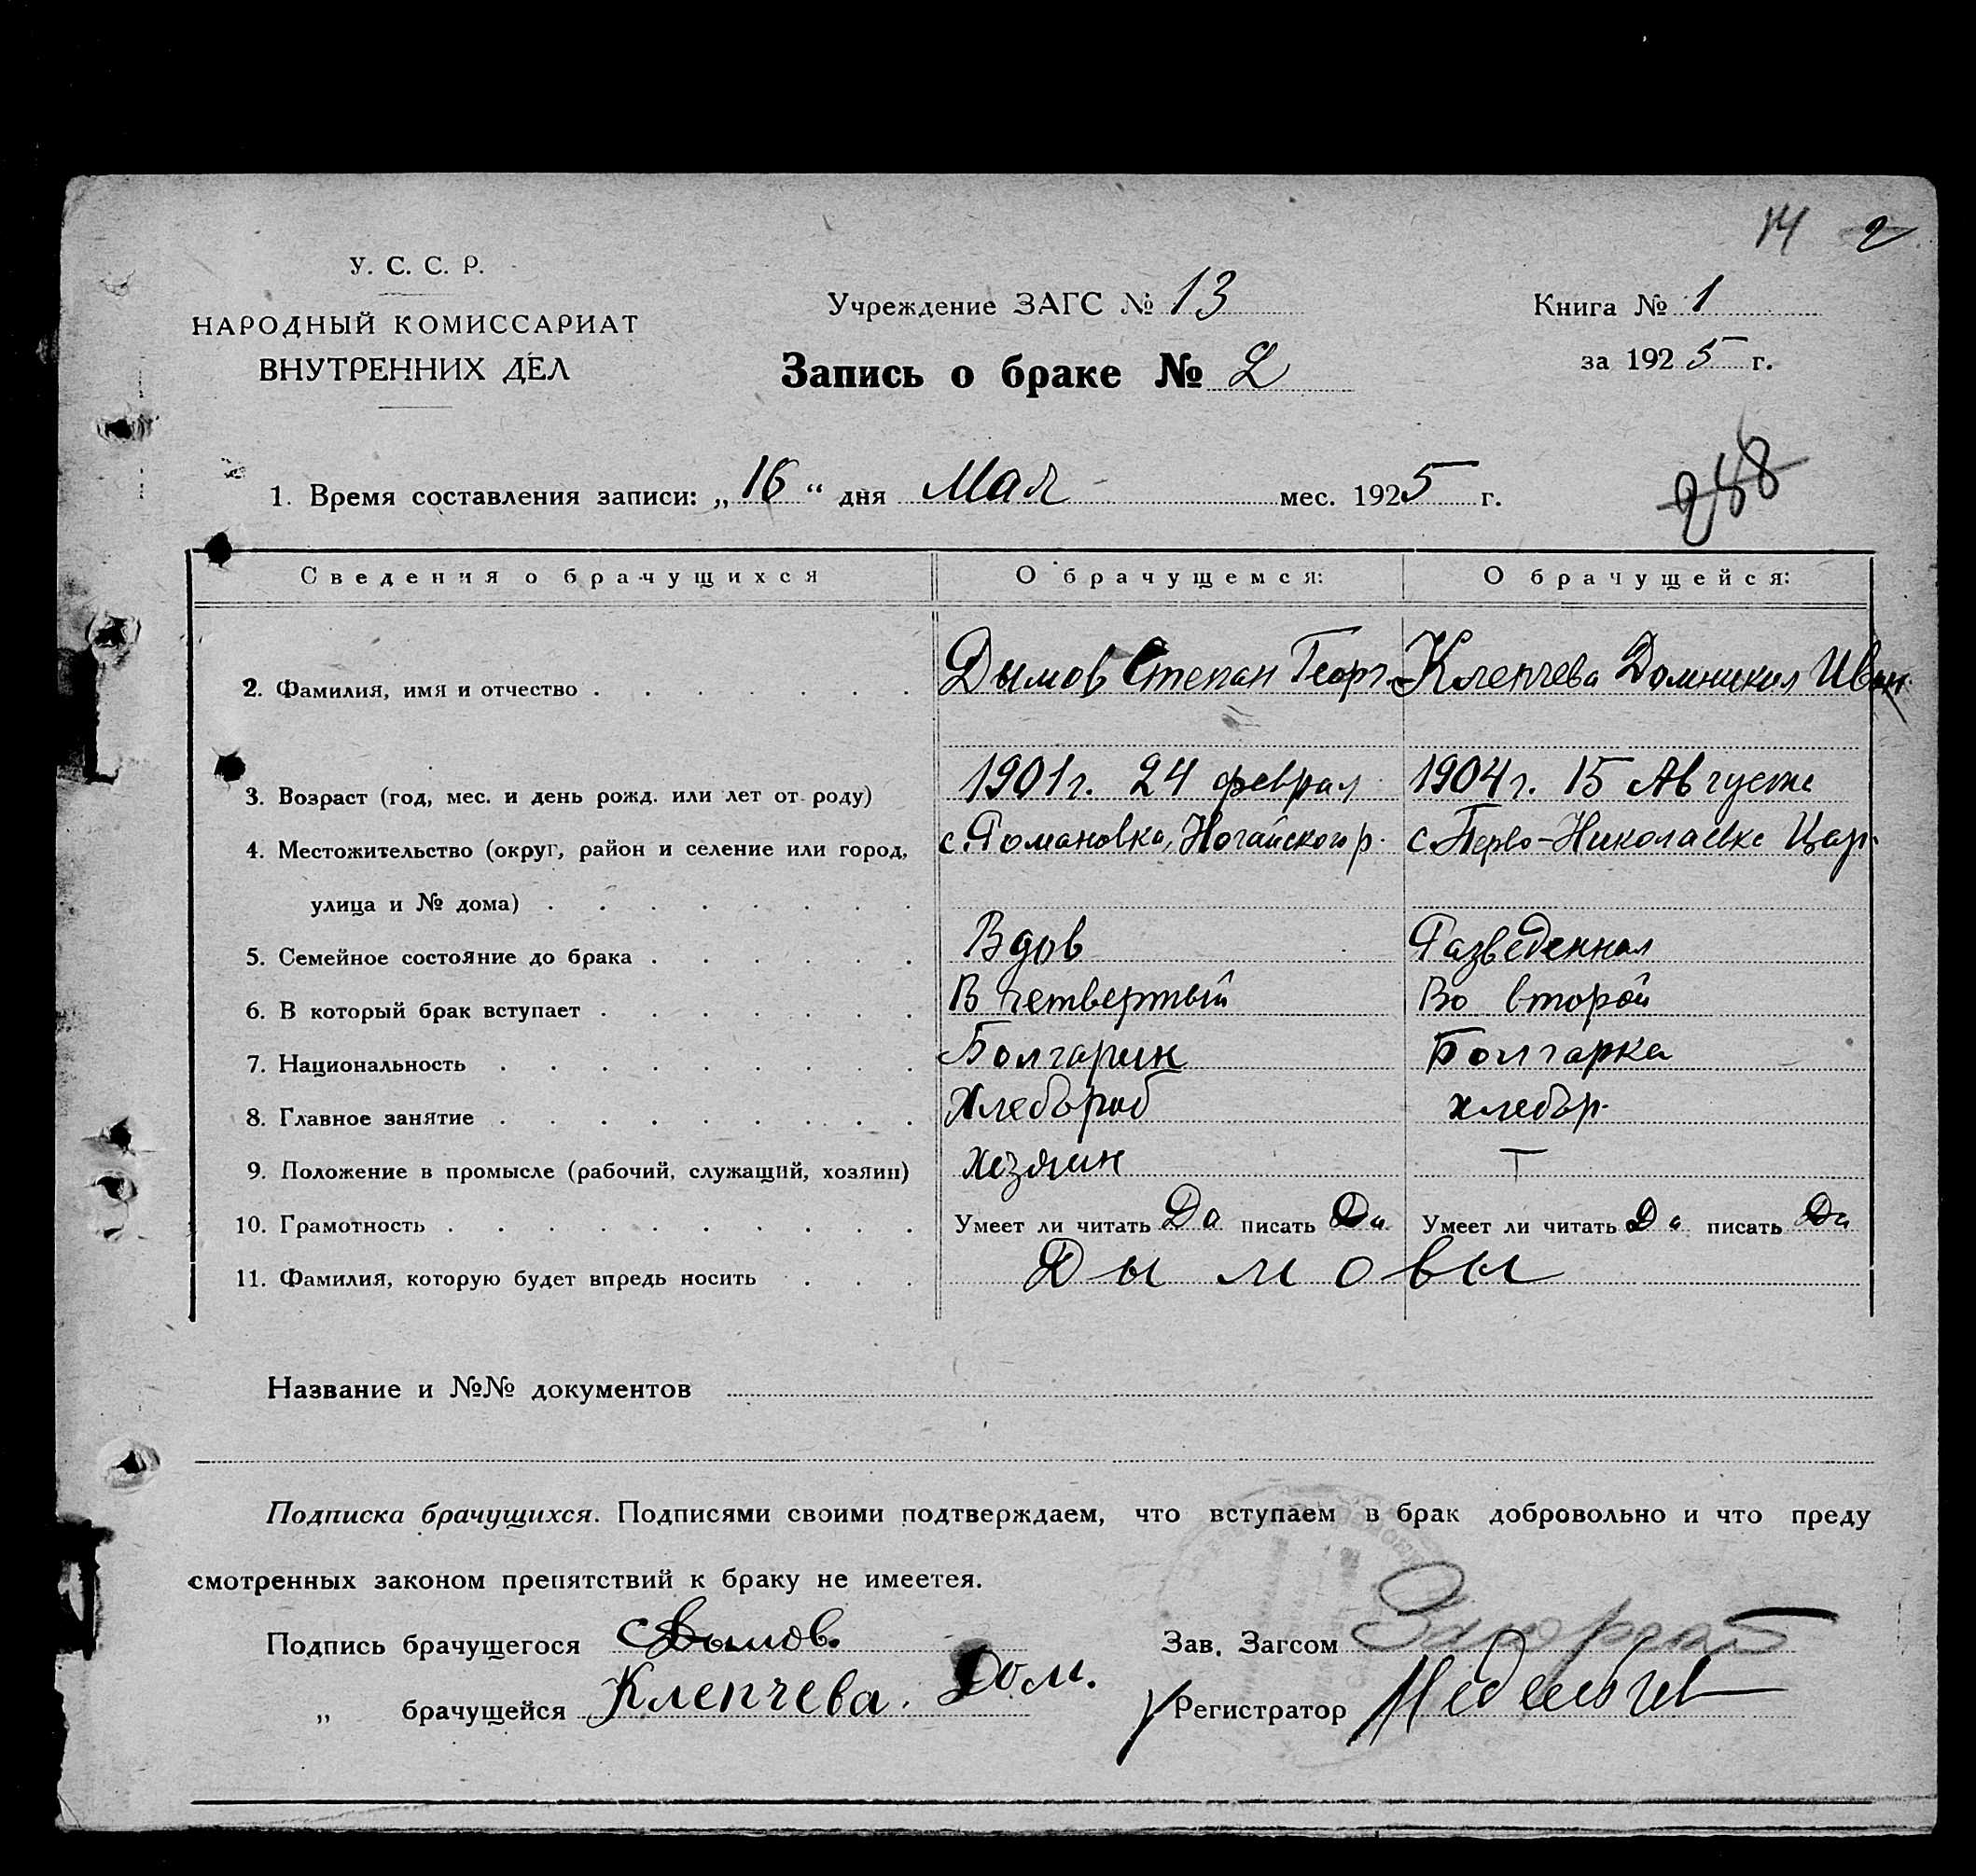 14 2
У. С. С. Р.
НАРОДНЫЙ КОМИССАРИАТ
ВНУТРЕННИХ ДЕЛ
Учреждение ЗАГС № 13
Запись о браке № 2
Книга № 1
за 1925 г.
1. Время составления записи: „16“ дня Мая мес. 1925 г.
288
Сведения о брачущихся О брачущемся: О брачущейся:
2. Фамилия, имя и отчество Дымов Степан Георг. Клепчева Домникия Иван
3. Возраст (год, мес. и день рожд. или лет от роду) 1901г. 24 феврал 1904г. 15 Августа
4. Местожительство (округ, район и селение или город, с. Романовка, Ногайского р. с. Перво-Николаевке Цар.
улица и № дома)
5. Семейное состояние до брака Вдов Разведенная
6. В который брак вступает В четвертый Во второй
7. Национальность Болгарин Болгарка
8. Главное занятие Хлебороб хлебор.
9. Положение в промысле (рабочий, служащий, хозяин) хозяин
10. Грамотность Умеет ли читать Да писать Да Умеет ли читать Да писать Да
11. Фамилия, которую будет впредь носить Дымовы
Название и №№ документов
Подписка брачущихся. Подписями своими подтверждаем, что вступаем в брак добровольно и что преду
смотренных законом препятствий к браку не имеется.
Подпись брачущегося СДымов. Зав. Загсом
„ брачущейся Клепчева. Дом. Регистратор